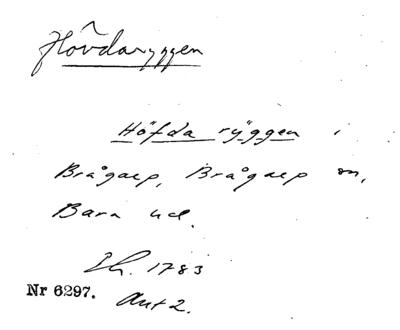 Hôvdaryggen
Höfda ryggen i
Brågarp, Brågarp sn,
Bara hd.
Lh. 1783
Nr 6297. Akt 2.